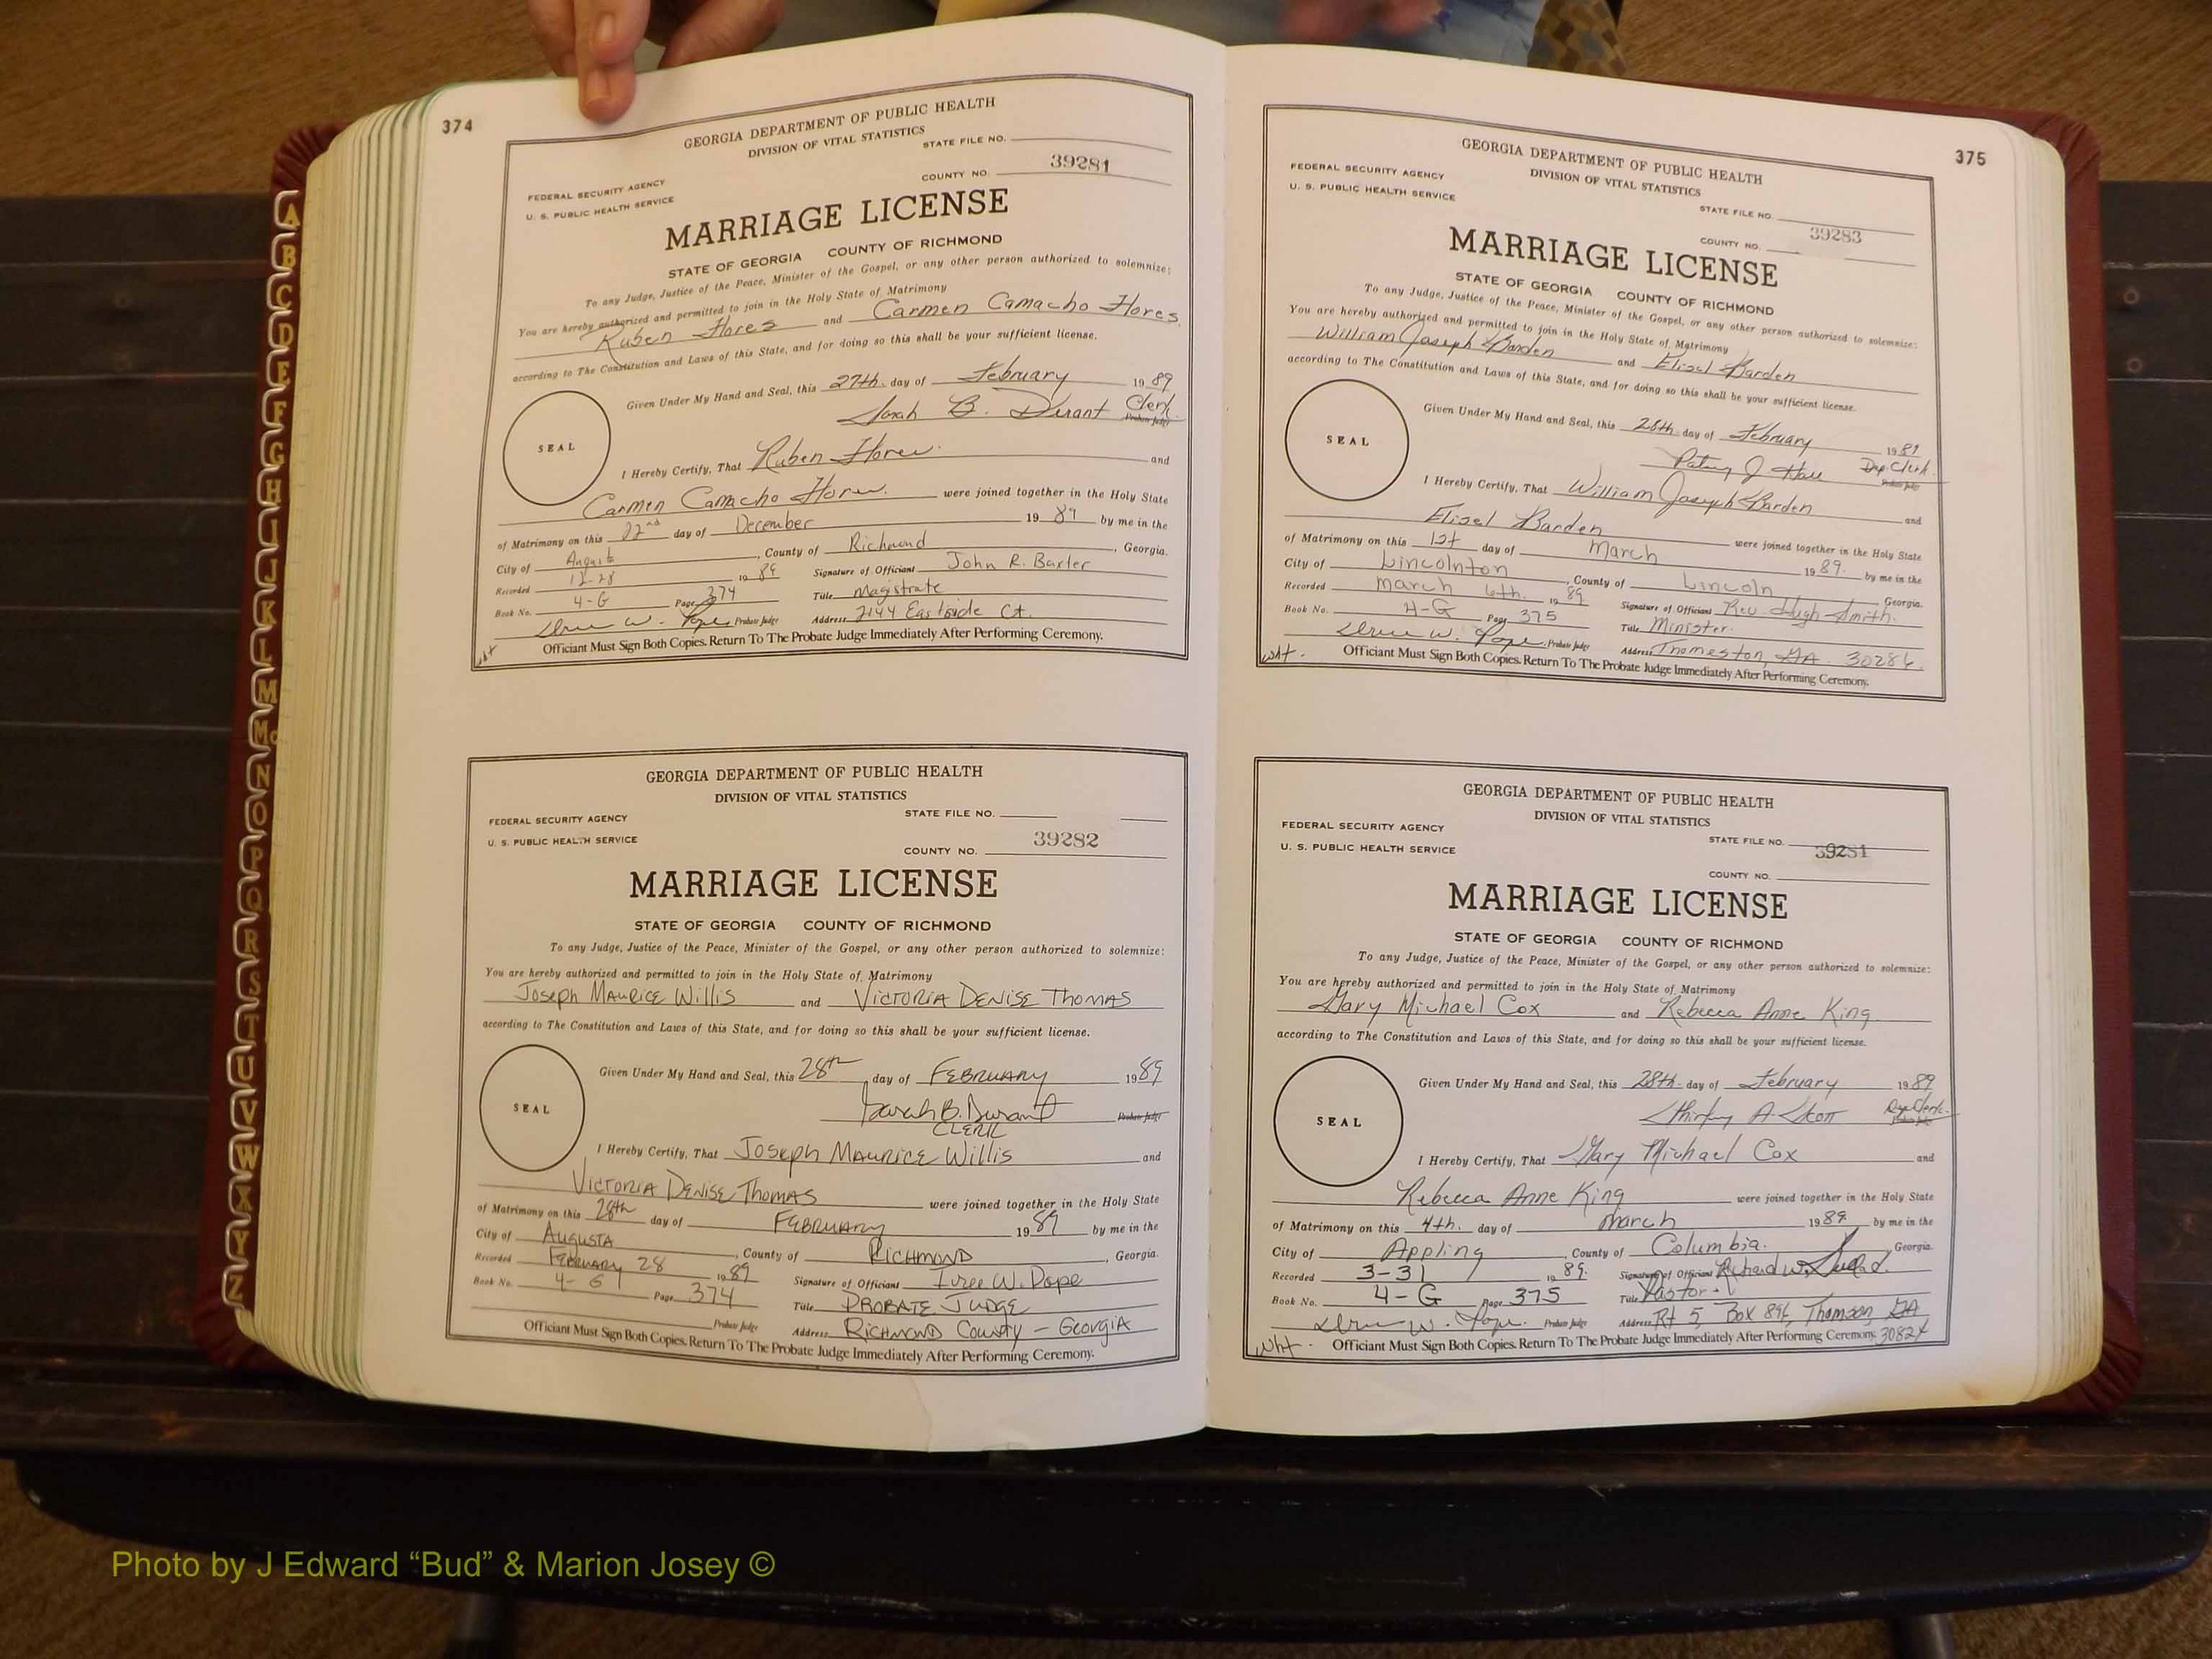 374
GEORGIA DEPARTMENT OF PUBLIC HEALTH
DIVISION OF VITAL STATISTICS
STATE FILE NO.
39281
COUNTY NO.
FEDERAL SECURITY AGENCY
U. S. PUBLIC HEALTH SERVICE
MARRIAGE LICENSE
STATE OF GEORGIA COUNTY OF RICHMOND
To any Judge, Justice of the Peace, Minister of the Gospel, or any other person authorized to solemnize:
You are hereby authorized and permitted to join in the Holy State of Matrimony
Ruben Flores and Carmen Camacho Flores
according to The Constitution and Laws of this State, and for doing so this shall be your sufficient license.
Given Under My Hand and Seal, this 27th day of February 1989
Sarah B. Durant Clerk
Probate Judge
SEAL
I Hereby Certify, That Ruben Flores and
Carmen Camacho Flores were joined together in the Holy State
of Matrimony on this 22nd day of December 1989 by me in the
City of Augusta, County of Richmond, Georgia.
Recorded 12-28 1989 Signature of Officiant John R. Baxter
Book No. 4-G Page 374 Title Magistrate
W. Pope Probate Judge Address 2144 Eastside Ct.
Officiant Must Sign Both Copies. Return To The Probate Judge Immediately After Performing Ceremony.
wht
GEORGIA DEPARTMENT OF PUBLIC HEALTH
DIVISION OF VITAL STATISTICS
STATE FILE NO.
FEDERAL SECURITY AGENCY
U. S. PUBLIC HEALTH SERVICE
39282
COUNTY NO.
MARRIAGE LICENSE
STATE OF GEORGIA COUNTY OF RICHMOND
To any Judge, Justice of the Peace, Minister of the Gospel, or any other person authorized to solemnize:
You are hereby authorized and permitted to join in the Holy State of Matrimony
Joseph Maurice Willis and Victoria Denise Thomas
according to The Constitution and Laws of this State, and for doing so this shall be your sufficient license.
Given Under My Hand and Seal, this 28th day of February 1989
Sarah B. Durant Probate Judge
CLERK
SEAL
I Hereby Certify, That Joseph Maurice Willis and
Victoria Denise Thomas were joined together in the Holy State
of Matrimony on this 28th day of February 1989 by me in the
City of Augusta, County of Richmond, Georgia.
Recorded February 28 1989 Signature of Officiant W. Pope
Book No. 4-G Page 374 Title Probate Judge
Probate Judge Address Richmond County - Georgia
Officiant Must Sign Both Copies. Return To The Probate Judge Immediately After Performing Ceremony.
375
GEORGIA DEPARTMENT OF PUBLIC HEALTH
DIVISION OF VITAL STATISTICS
FEDERAL SECURITY AGENCY
U. S. PUBLIC HEALTH SERVICE
STATE FILE NO.
39283
COUNTY NO.
MARRIAGE LICENSE
STATE OF GEORGIA COUNTY OF RICHMOND
To any Judge, Justice of the Peace, Minister of the Gospel, or any other person authorized to solemnize:
You are hereby authorized and permitted to join in the Holy State of Matrimony
William Joseph Barden and Elisel Barden
according to The Constitution and Laws of this State, and for doing so this shall be your sufficient license.
Given Under My Hand and Seal, this 28th day of February 1989
Patsy J. Hall Dep. Clerk
Probate Judge
SEAL
I Hereby Certify, That William Joseph Barden and
Elisel Barden were joined together in the Holy State
of Matrimony on this 1st day of March 1989 by me in the
City of Lincolnton, County of Lincoln Georgia.
Recorded March 6th. 1989 Signature of Officiant Rev. Hugh Smith
Book No. 4-G Page 375 Title Minister
W. Pope Probate Judge Address Thomeston, GA. 30286
wht. Officiant Must Sign Both Copies. Return To The Probate Judge Immediately After Performing Ceremony.
GEORGIA DEPARTMENT OF PUBLIC HEALTH
DIVISION OF VITAL STATISTICS
FEDERAL SECURITY AGENCY
U. S. PUBLIC HEALTH SERVICE
STATE FILE NO.
COUNTY NO.
MARRIAGE LICENSE
STATE OF GEORGIA COUNTY OF RICHMOND
To any Judge, Justice of the Peace, Minister of the Gospel, or any other person authorized to solemnize:
You are hereby authorized and permitted to join in the Holy State of Matrimony
Gary Michael Cox and Rebecca Anne King
according to The Constitution and Laws of this State, and for doing so this shall be your sufficient license.
Given Under My Hand and Seal, this 28th day of February 1989
Shirley A. Scott Dep. Clerk
SEAL
I Hereby Certify, That Gary Michael Cox and
Rebecca Anne King were joined together in the Holy State
of Matrimony on this 4th. day of March 1989 by me in the
City of Appling, County of Columbia, Georgia.
Recorded 3-31 1989. Signature of Officiant Richard W.
Book No. 4-G Page 375 Title Pastor
W. Pope Probate Judge Address Rt 5, Box 896, Thomson, GA
wht. Officiant Must Sign Both Copies. Return To The Probate Judge Immediately After Performing Ceremony. 30824
A
B
C
D
E
F
G
H
I
J
K
L
M
Mc
N
O
P
Q
R
S
T
U
V
W
X
Y
Z
Photo by J Edward “Bud” & Marion Josey ©